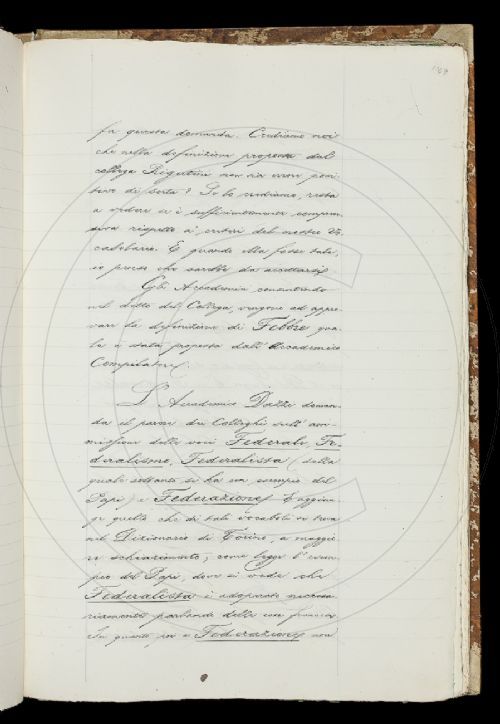 fa questa domanda. Crediamo noi
che nella definizione proposta dal
collega Rigutini non sia error posi-
tivo di sorta? Io lo crediamo, resta
a vedere se è sufficientemente compren-
siva rispetto ai criteri del nostro Vo-
cabolario. E quando ella fosse tale,
io penso che sarebbe da accettarsi.
Gli Accademici consentendo
nel detto del Collega, vengono ad appro-
vare la definizione di Febbre qua-
le è stata proposta dall'Accademico
Compilatore.
L'Accademico Dazzi doman-
da il parere dei Colleghi sull'am-
missione delle voci Federale, Fe-
deralismo, Federalista (della
quale soltanto si ha un esempio del
Papi) e Federazione. E aggiun-
ge quello che di tali vocaboli si trova
nel Dizionario di Torino, a maggio-
re schiarimento; come legge l'esem-
pio del Papi, dove si vede che
Federalista è adoperato necessa-
riamente parlando delle cose francesi.
In quanto poi a Federazione non